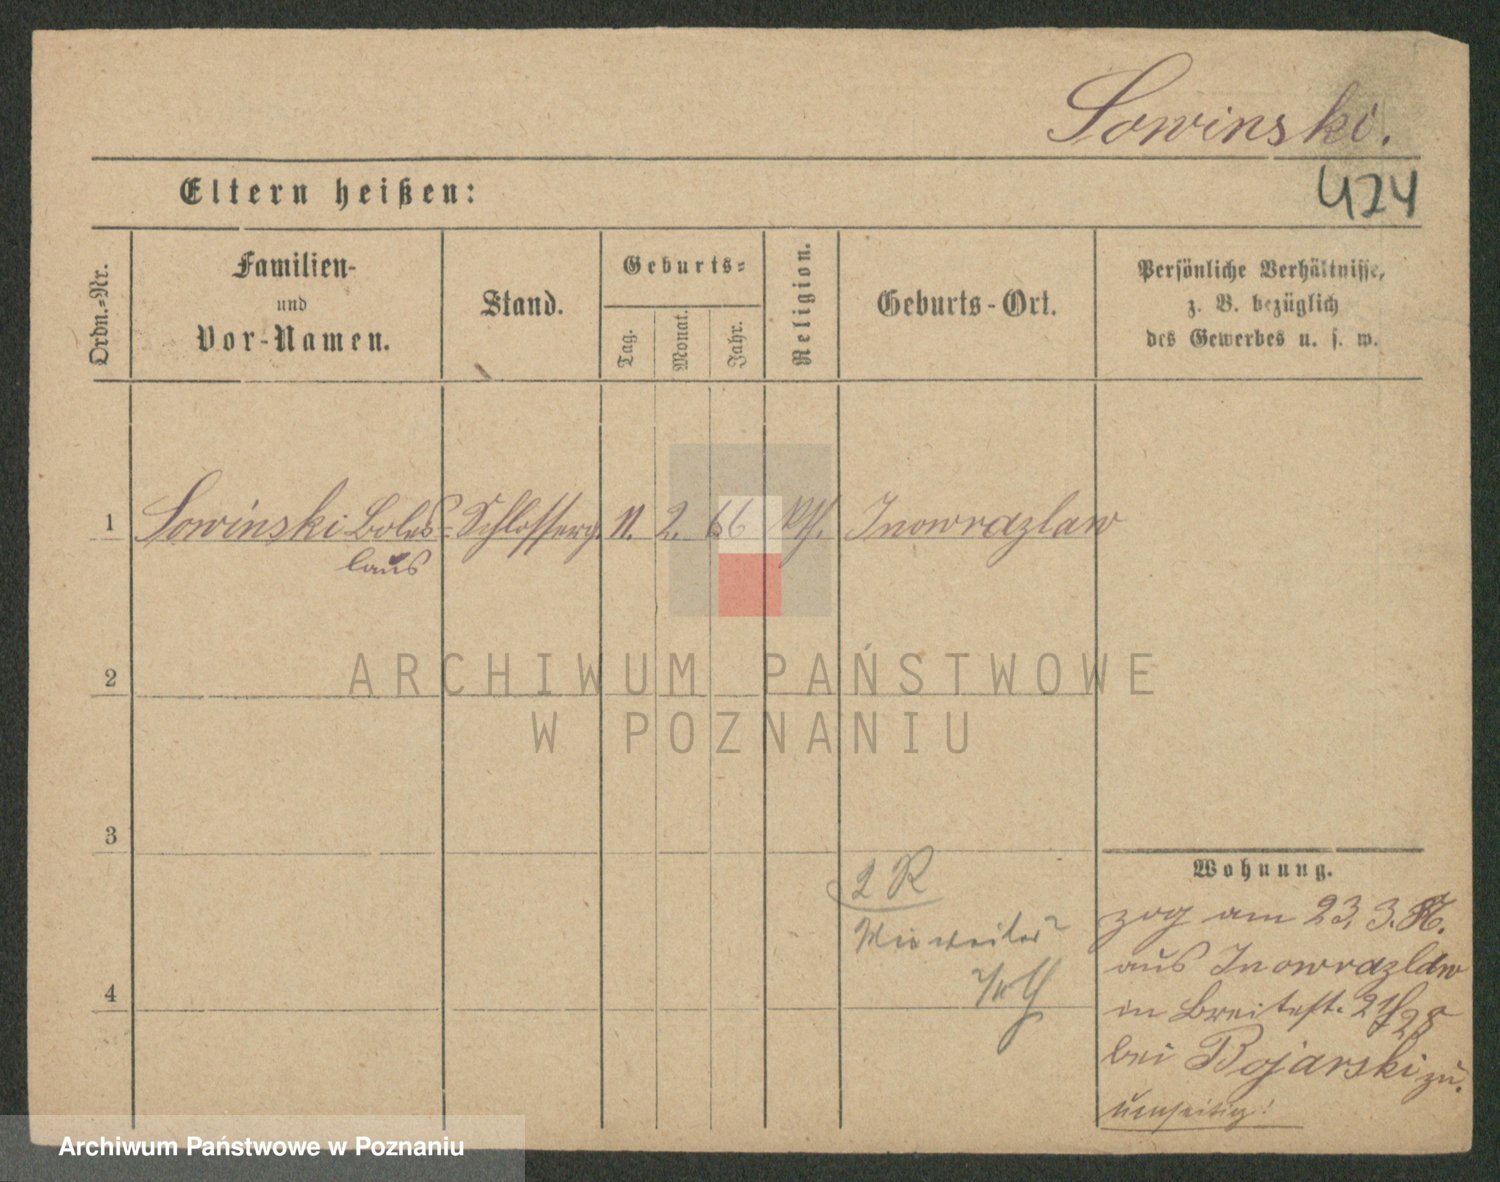 Sowinski.
Eltern heißen:
424
Ordn.-Nr.
Familien-
und
Vor-Namen.
Stand.
Geburts-
Tag.
Monat.
Jahr.
Religion.
Geburts-Ort.
Persönliche Verhältnisse,
z. B. bezüglich
des Gewerbes u. s. w.
1 Sowinski Boles- Schlosserg. 11. 2. 66 kth. Inowrazlaw
laus
ARCHIWUM PAŃSTWOWE
W POZNANIU
2
3
4
2 R
Wohnung.
zog am 23. 3. 87.
aus Inowrazlaw
in Breitest. 21/28
bei Bojarski zu.
umseitig!
Archiwum Państwowe w Poznaniu